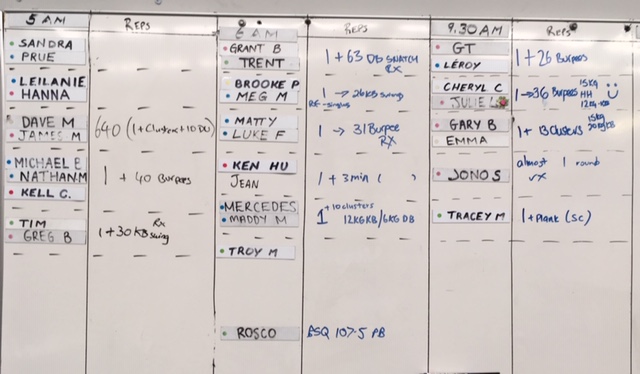 5 AM REPS
SANDRA
PRUE
LEILANIE
HANNA
DAVE M
JAMES M
640 (1+Clusters+10 DU)
MICHAEL B
NATHAN M
KELL C.
1 + 40 Burpees
TIM
GREG B
1+30 KB swing
Rx
6 AM REPS
GRANT B
TRENT
1+63 Db SNATCH
RX
BROOKE P
MEG M
1 → 26 KB swing
MATTY
LUKE F
1 → 31 Burpee
RX
KEN HU
JEAN
1 + 3 min ( )
MERCEDES
MADDY M
1 + 10 clusters
12KG KB/6KG DB
TROY M
ROSCO
BSQ 107.5 PB
9.30 AM REPS
GT
LEROY
1 + 26 Burpees
CHERYL C
JULIE
1→36 Burpees
15KG
HH
12KG KB
GARY B
EMMA
1+ 13 Clusters
15kg
JONO S
almost 1 round
rx
TRACEY M
1+ Plank (SC)